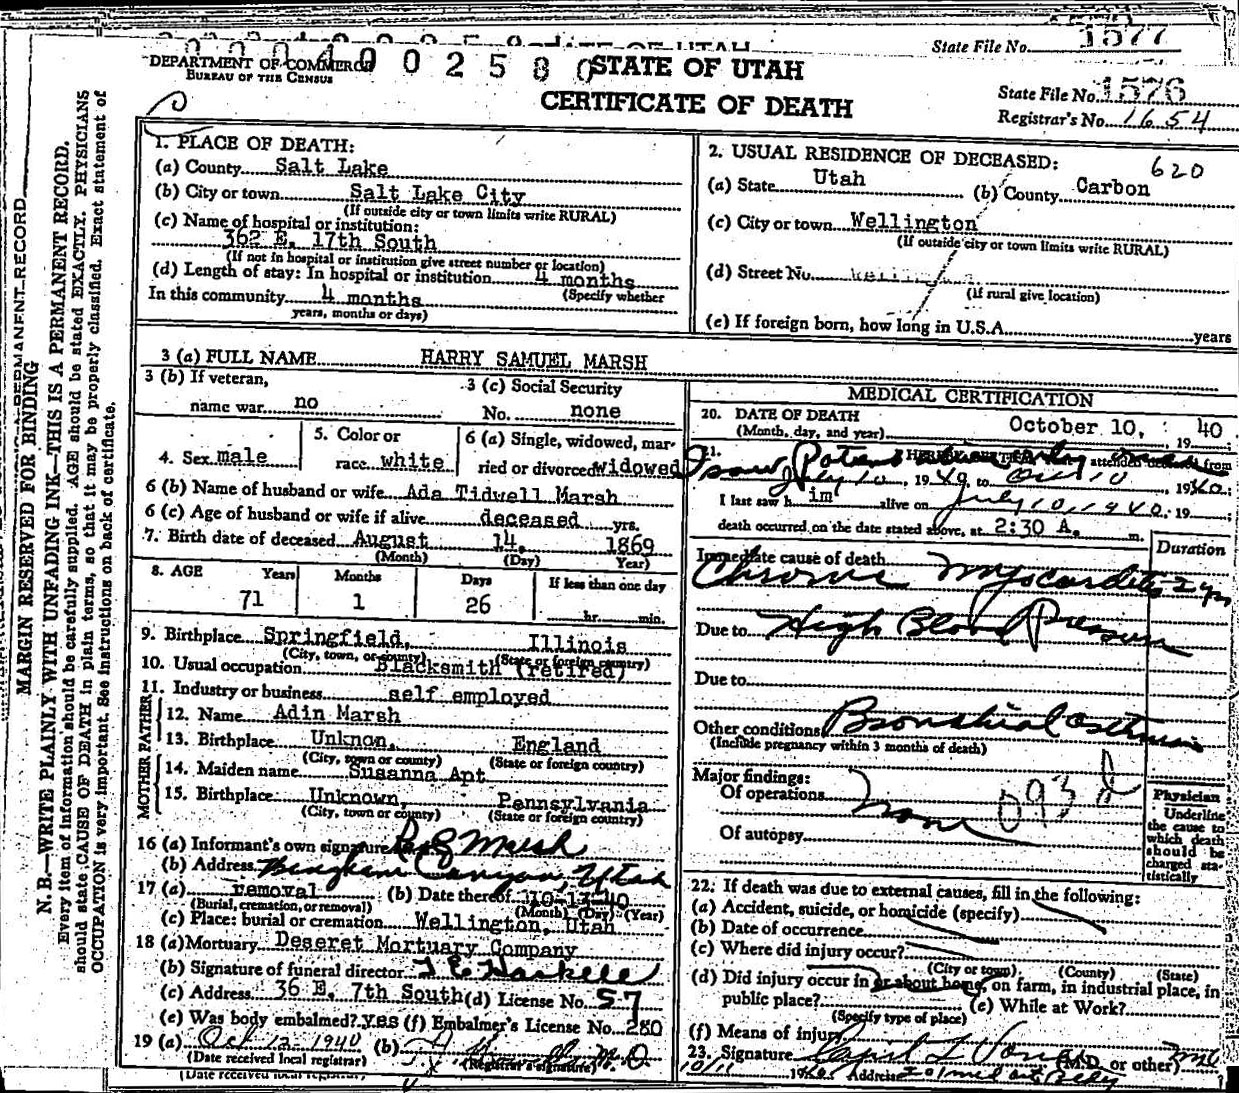 State File No. 1577
DEPARTMENT OF COMMERCE
BUREAU OF THE CENSUS
STATE OF UTAH
CERTIFICATE OF DEATH
State File No. 1576
Registrar's No. 1654
MARGIN RESERVED FOR BINDING
N. B.—WRITE PLAINLY WITH UNFADING INK—THIS IS A PERMANENT RECORD.
Every item of information should be carefully supplied. AGE should be stated EXACTLY. PHYSICIANS
should state CAUSE OF DEATH in plain terms, so that it may be properly classified. Exact statement of
OCCUPATION is very important. See instructions on back of certificate.
1. PLACE OF DEATH:
(a) County Salt Lake
(b) City or town Salt Lake City
(If outside city or town limits write RURAL)
(c) Name of hospital or institution:
362 E. 17th South
(If not in hospital or institution give street number or location)
(d) Length of stay: In hospital or institution 4 months
(Specify whether
In this community 4 months
years, months or days)
2. USUAL RESIDENCE OF DECEASED: 620
(a) State Utah (b) County Carbon
(c) City or town Wellington
(If outside city or town limits write RURAL)
(d) Street No.
(If rural give location)
(e) If foreign born, how long in U.S.A. years
3 (a) FULL NAME HARRY SAMUEL MARSH
3 (b) If veteran,
name war no
3 (c) Social Security
No. none
4. Sex male
5. Color or
race white
6 (a) Single, widowed, mar-
ried or divorced widowed
6 (b) Name of husband or wife Ada Tidwell Marsh
6 (c) Age of husband or wife if alive deceased yrs.
7. Birth date of deceased August 14, 1869
(Month) (Day) Year)
8. AGE Years Months Days If less than one day
71 1 26 hr. min.
9. Birthplace Springfield, Illinois
(City, town, or county) (State or foreign country)
10. Usual occupation Blacksmith (retired)
11. Industry or business self employed
FATHER
12. Name Adin Marsh
13. Birthplace Unknon, England
(City, town or county) (State or foreign country)
MOTHER
14. Maiden name Susanna Apt
15. Birthplace Unknown, Pennsylvania
(City, town or county) (State or foreign country)
16 (a) Informant's own signature Marsh
(b) Address Bingham Canyon, Utah
17 (a) removal (b) Date thereof 10-13-40
(Burial, cremation, or removal) (Month) (Day) (Year)
(c) Place: burial or cremation Wellington, Utah
18 (a) Mortuary Deseret Mortuary Company
(b) Signature of funeral director
(c) Address 36 E. 7th South (d) License No. 57
(e) Was body embalmed? yes (f) Embalmer's License No. 280
19 (a) Oct 12 1940 (b) M.D.
(Date received local registrar) (Registrar's signature)
(Date received local registrar)
MEDICAL CERTIFICATION
20. DATE OF DEATH
(Month, day, and year) October 10, 19 40
21.
attended deceased from
July 10, 1940, to Oct 10, 1940;
I last saw him alive on July 10, 1940, 19 ;
death occurred on the date stated above, at 2:30 A. m.
Duration
Immediate cause of death
Chronic Myocarditis 2 yrs
Due to High Blood Pressure
Due to
Other conditions Bronchial Asthma
(Include pregnancy within 3 months of death)
Major findings:
Of operations None 093
Of autopsy
Physician
Underline
the cause to
which death
should be
charged sta-
tistically
22. If death was due to external causes, fill in the following:
(a) Accident, suicide, or homicide (specify)
(b) Date of occurrence
(c) Where did injury occur?
(City or town) (County) (State)
(d) Did injury occur in or about home, on farm, in industrial place, in
public place? (e) While at Work?
(Specify type of place)
(f) Means of injury
23. Signature (M.D. or other)
10/11 1940 Address